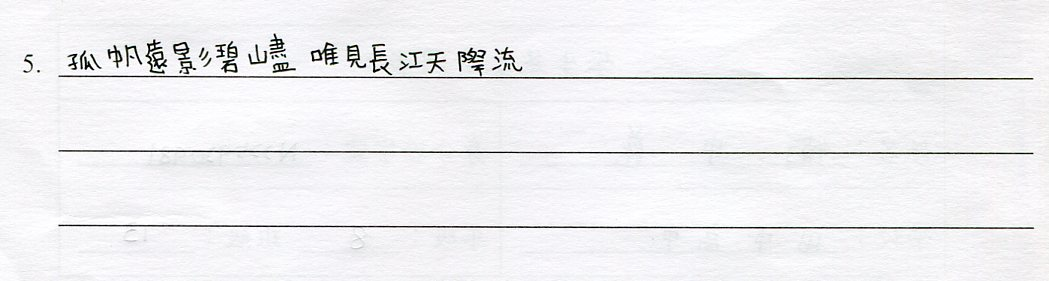 5. 孤帆遠影碧山盡 唯見長江天際流